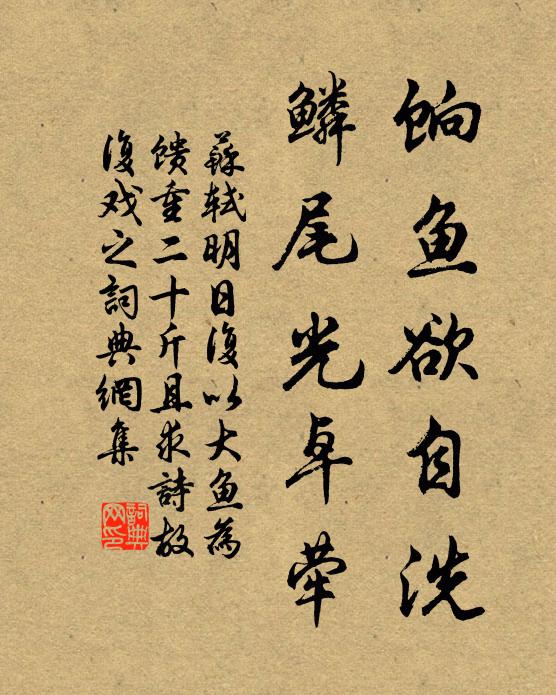 饷鱼欲自洗
鳞尾光卓荦
蘇轼明日復以大鱼為
馈重二十斤且求詩故
復戏之詞典網集
詞典
网印